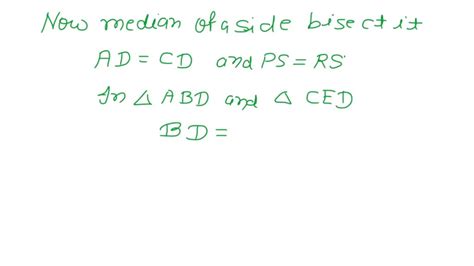 Now median of a side bisect it
AD = CD and PS = RS
In △ ABD and △ CED
BD =